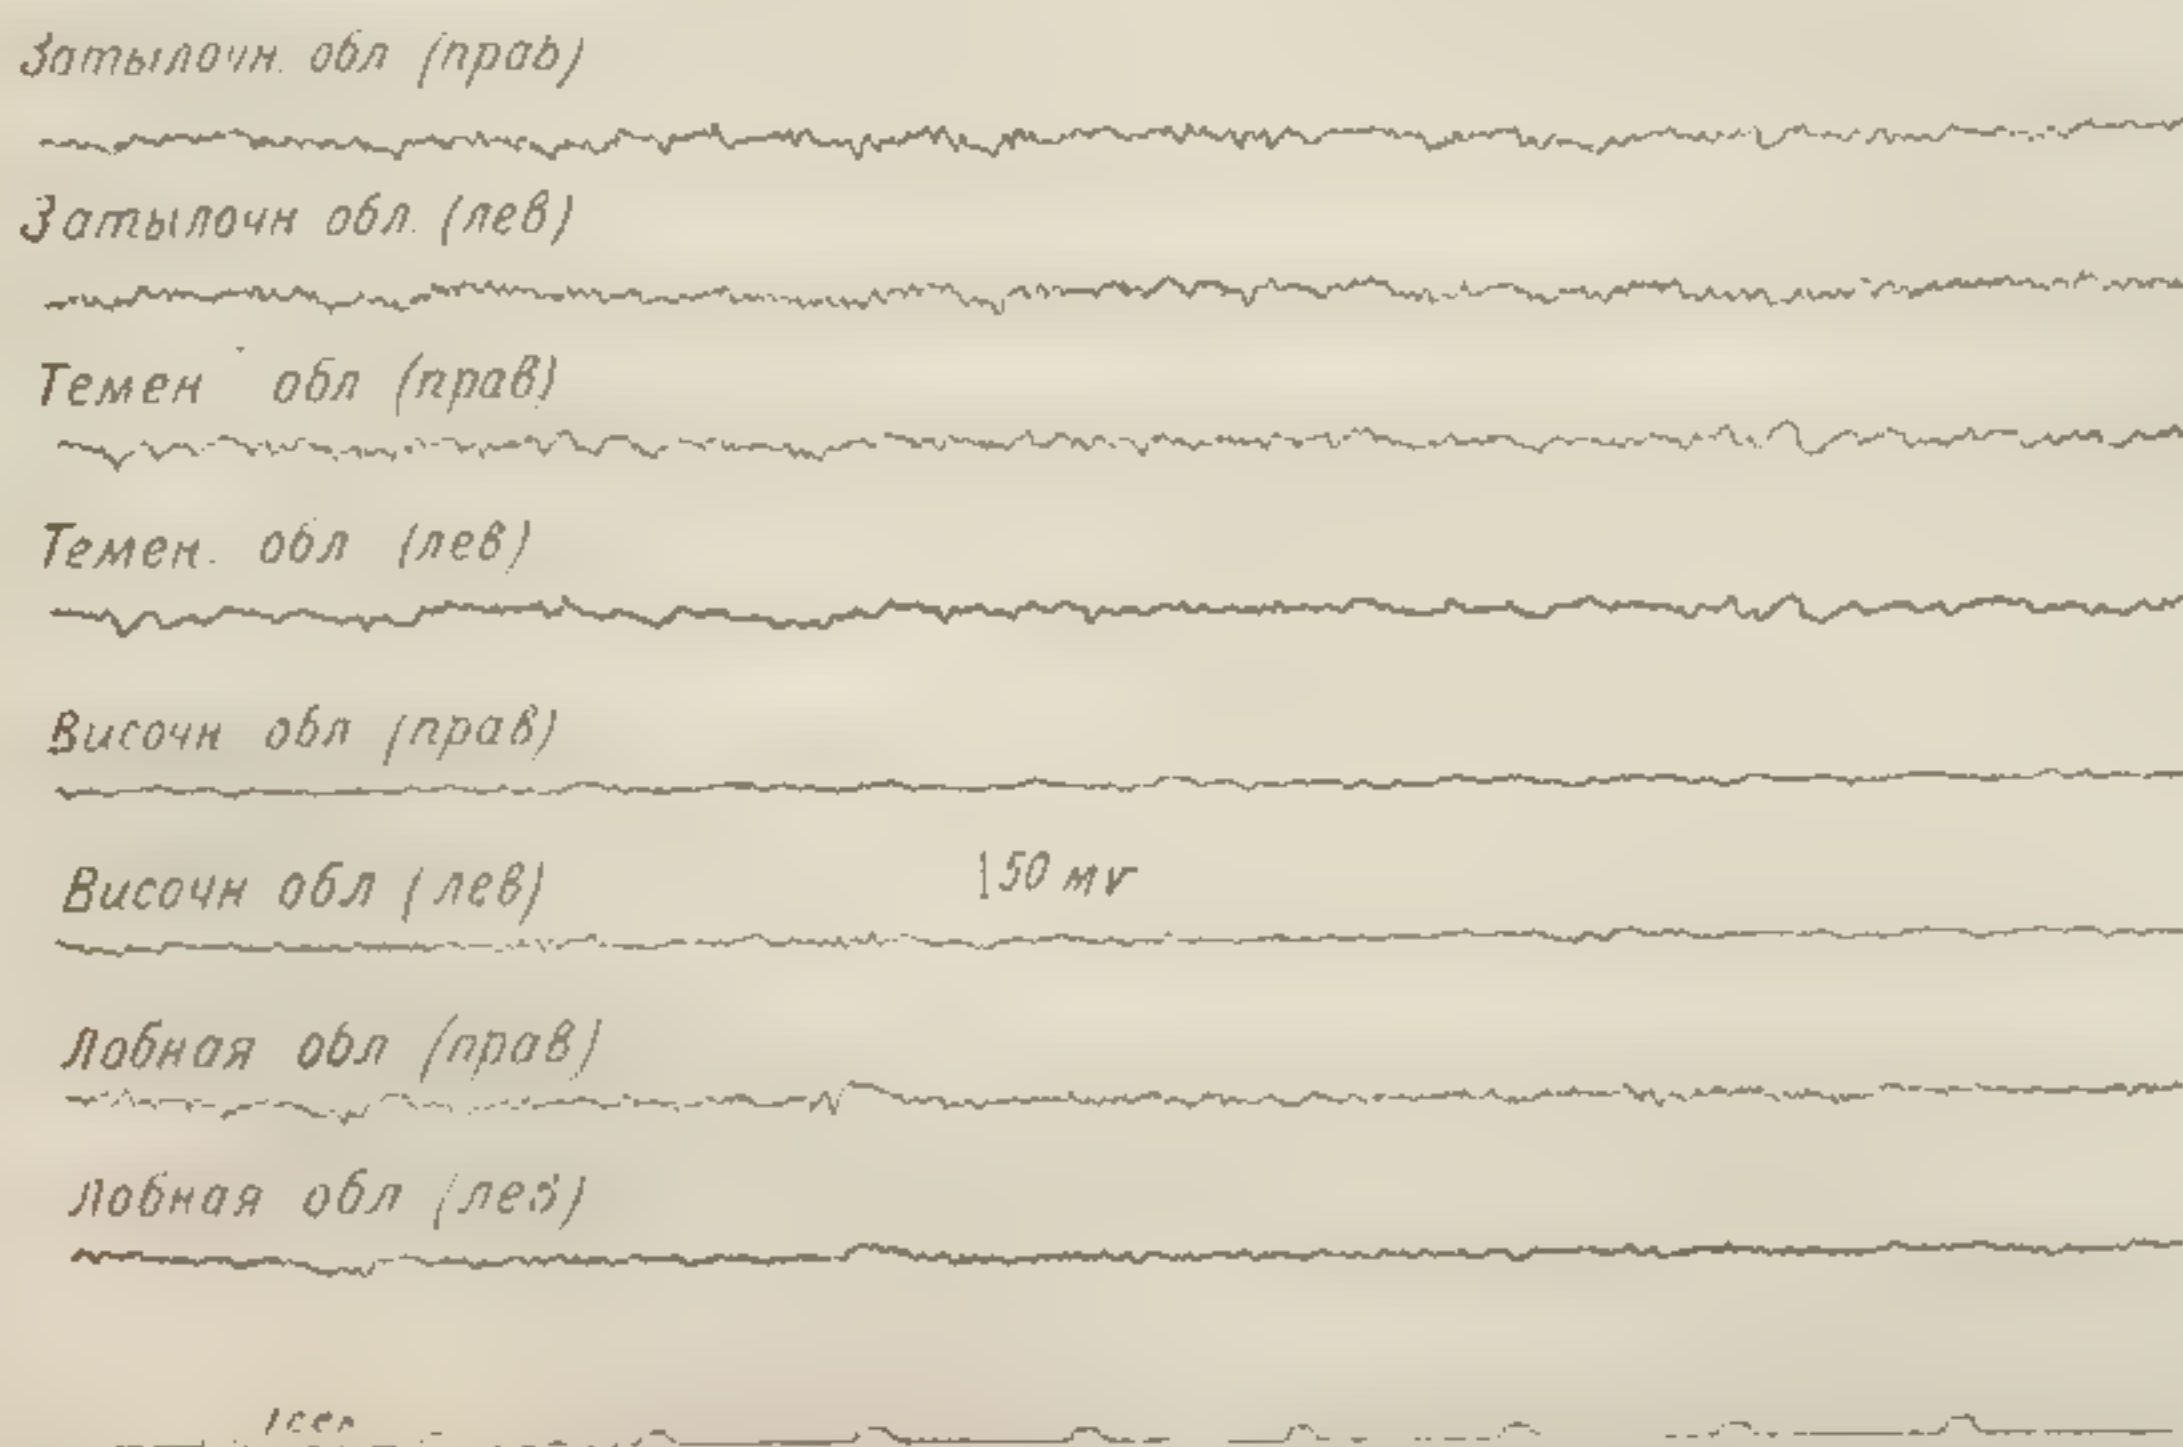 Затылочн. обл (прав)
Затылочн обл. (лев)
Темен обл (прав)
Темен. обл (лев)
Височн обл (прав)
Височн обл (лев)
50 мv
Лобная обл (прав)
Лобная обл (лев)
1 сек